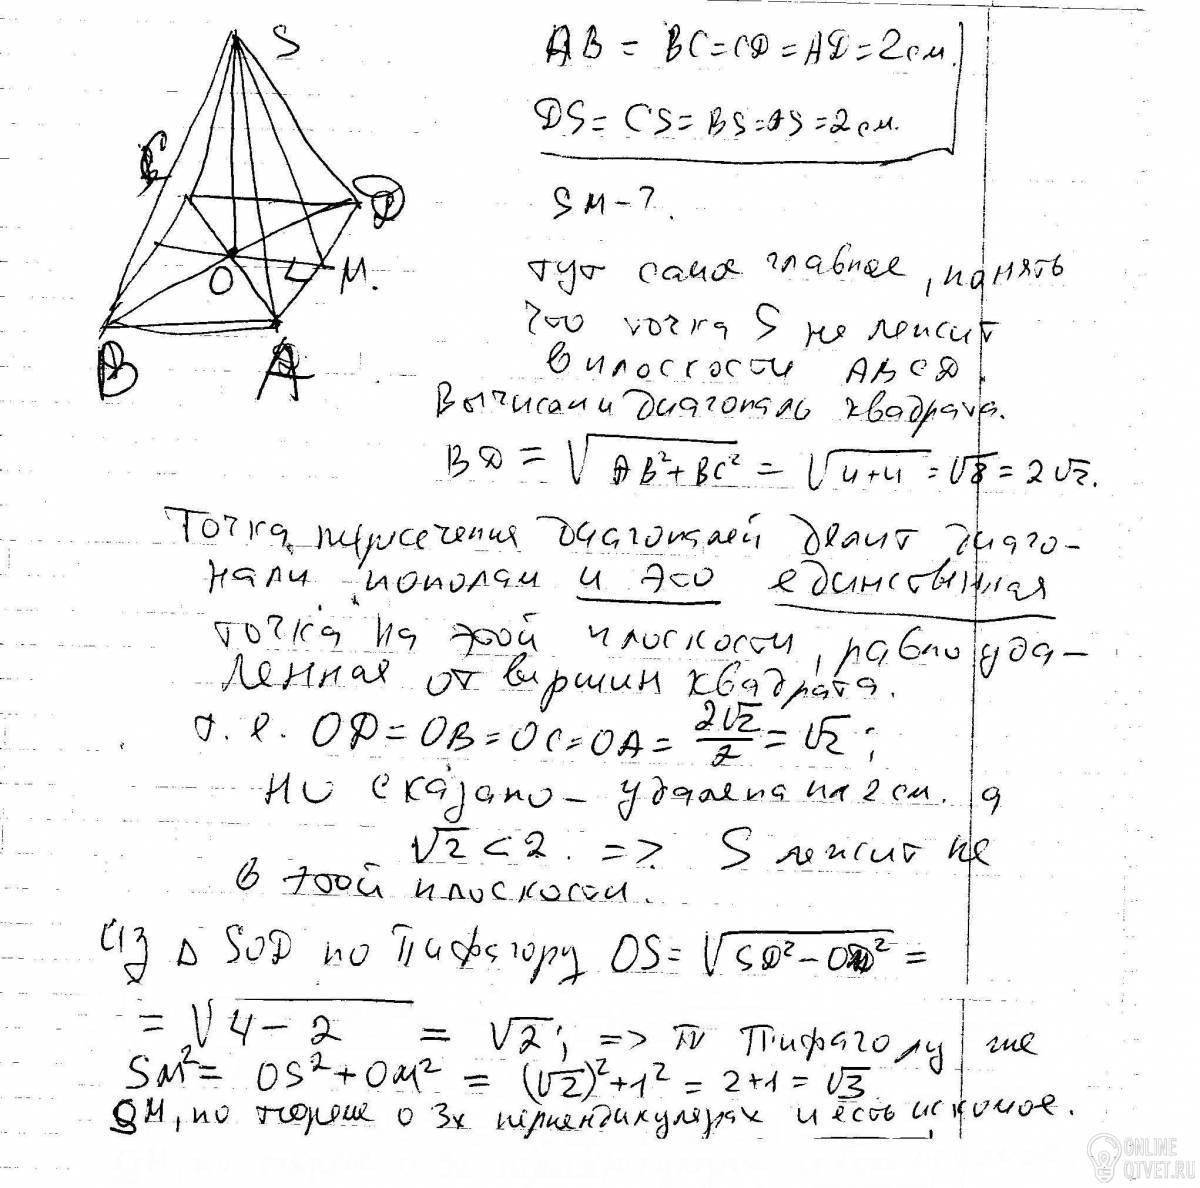 S
AB = BC = CD = AD = 2 см.
DS = CS = BS = AS = 2 см.
C
D
SM - ?
O
M.
тут самое главное, понять
что точка S не лежит
B
A
в плоскости ABCD.
Вычислим диагональ квадрата.
BD = √(AB²+BC²) = √(4+4) = √8 = 2√2.
Точка пересечения диагоналей делит диаго-
нали пополам и это единственная
точка на этой плоскости, равноуда-
ленная от вершин квадрата.
т. е. OD = OB = OC = OA = 2√2/2 = √2;
Но сказано - удалена на 2 см. а
√2 < 2. => S лежит не
в этой плоскости.
Из Δ SOD по Пифагору OS = √(SD² - OD²) =
= √(4 - 2) = √2; => по Пифагору же
SM² = OS² + OM² = (√2)² + 1² = 2+1 = √3
SM, по теореме о 3х перпендикулярах и есть искомое.
ONLINE
OTVET.RU